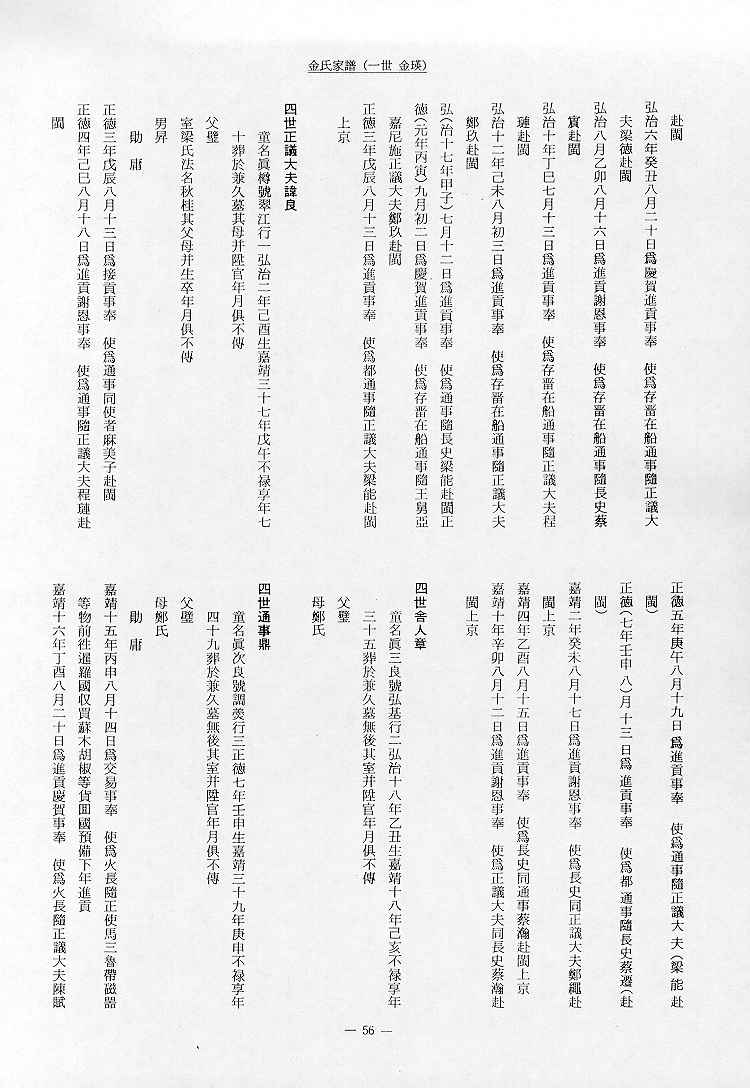 金氏家譜（一世 金瑛）
赴閩
弘治六年癸丑八月二十日爲慶賀進貢事奉　使爲存畱在船通事隨正議大
夫梁德赴閩
弘治八月乙卯八月十六日爲進貢謝恩事奉　使爲存畱在船通事隨長史蔡
賓赴閩
弘治十年丁巳七月十三日爲進貢事奉　使爲存畱在船通事隨正議大夫程
璉赴閩
弘治十二年己未八月初三日爲進貢事奉　使爲存畱在船通事隨正議大夫
鄭玖赴閩
弘（治十七年甲子）七月十二日爲進貢事奉　使爲通事隨長史梁能赴閩正
德（元年丙寅）九月初二日爲慶賀進貢事奉　使爲存畱在船通事隨王舅亞
嘉尼施正議大夫鄭玖赴閩
正德三年戊辰八月十三日爲進貢事奉　使爲都通事隨正議大夫梁能赴閩
上京
四世正議大夫諱良
童名眞樽號翠江行一弘治二年己酉生嘉靖三十七年戊午不禄享年七
十葬於兼久墓其母并陞官年月俱不傳
父璧
室梁氏法名秋桂其父母并生卒年月俱不傳
男昇
勛　庸
正德三年戊辰八月十三日爲接貢事奉　使爲通事同使者麻美子赴閩
正德四年己巳八月十八日爲進貢謝恩事奉　使爲通事隨正議大夫程璉赴
閩
正德五年庚午八月十九日爲進貢事奉　使爲通事隨正議大夫（梁能赴
閩）
正德（七年壬申八）月十三日爲進貢事奉　使爲都通事隨長史蔡遷（赴
閩）
嘉靖二年癸未八月十七日爲進貢謝恩事奉　使爲長史同正議大夫鄭繩赴
閩上京
嘉靖四年乙酉八月十五日爲進貢事奉　使爲長史同通事蔡瀚赴閩上京
嘉靖十年辛卯八月十二日爲進貢謝恩事奉　使爲正議大夫同長史蔡瀚赴
閩上京
四世舎人章
童名眞三良號弘基行二弘治十八年乙丑生嘉靖十八年己亥不禄享年
三十五葬於兼久墓無後其室并陞官年月俱不傳
父璧
母鄭氏
四世通事鼎
童名眞次良號調羮行三正德七年壬申生嘉靖三十九年庚申不禄享年
四十九葬於兼久墓無後其室并陞官年月俱不傳
父璧
母鄭氏
勛　庸
嘉靖十五年丙申八月十四日爲交易事奉　使爲火長隨正使馬三魯帶磁噐
等物前徃暹羅國収買蘇木胡椒等貨囬國預備下年進貢
嘉靖十六年丁酉八月二十日爲進貢慶賀事奉　使爲火長隨正議大夫陳賦
— 56 —